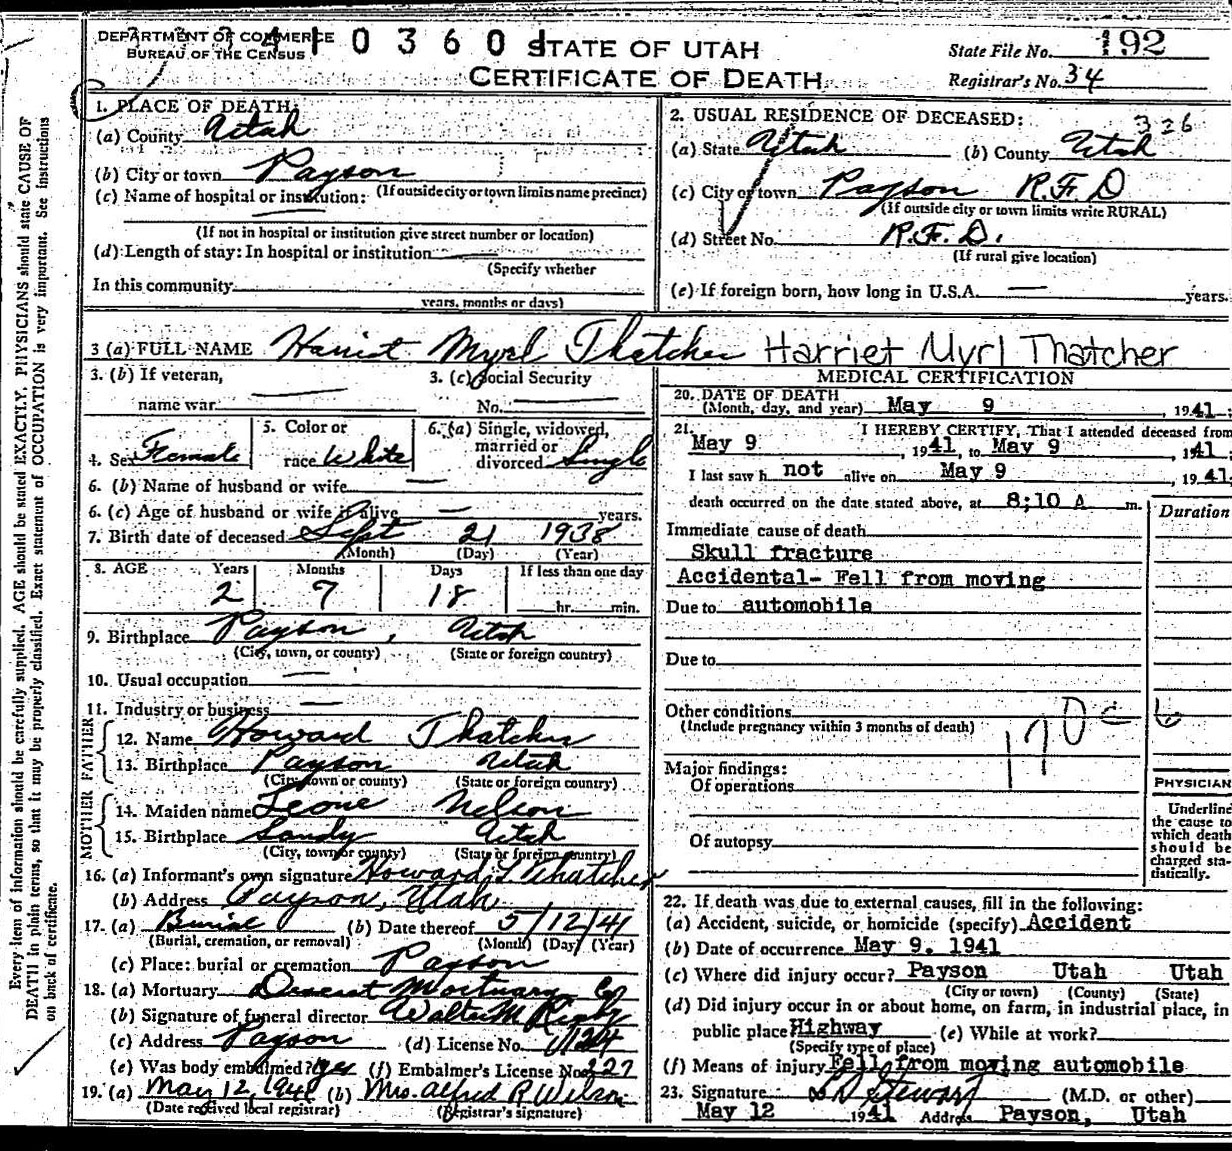 DEPARTMENT OF COMMERCE
BUREAU OF THE CENSUS
0 3 6 0
STATE OF UTAH
CERTIFICATE OF DEATH
State File No. 192
Registrar's No. 34
1. PLACE OF DEATH:
(a) County Utah
(b) City or town Payson
(If outside city or town limits name precinct)
(c) Name of hospital or institution:
(If not in hospital or institution give street number or location)
(d) Length of stay: In hospital or institution
(Specify whether
In this community
years, months or days)
2. USUAL RESIDENCE OF DECEASED: 326
(a) State Utah (b) County Utah
(c) City or town Payson R.F.D
(If outside city or town limits write RURAL)
(d) Street No. R.F.D.
(If rural give location)
(e) If foreign born, how long in U.S.A. — years.
3 (a) FULL NAME Harriet Myrl Thatcher Harriet Myrl Thatcher
3. (b) If veteran,
name war
3. (c) Social Security
No.
4. Sex Female
5. Color or
race White
6. (a) Single, widowed,
married or
divorced Single
6. (b) Name of husband or wife —
6. (c) Age of husband or wife if alive — years.
7. Birth date of deceased Sept 21 1938
(Month) (Day) (Year)
8. AGE Years Months Days If less than one day
2 7 18 hr. min.
9. Birthplace Payson, Utah
(City, town, or county) (State or foreign country)
10. Usual occupation —
11. Industry or business —
FATHER
12. Name Howard Thatcher
13. Birthplace Payson Utah
(City, town or county) (State or foreign country)
MOTHER
14. Maiden name Leone Nelson
15. Birthplace Sandy Utah
(City, town or county) (State or foreign country)
16. (a) Informant's own signature Howard L Thatcher
(b) Address Payson, Utah
17. (a) Burial (b) Date thereof 5/12/41
(Burial, cremation, or removal) (Month) (Day) (Year)
(c) Place: burial or cremation Payson
18. (a) Mortuary Deseret Mortuary Co
(b) Signature of funeral director Walter M Rigby
(c) Address Payson (d) License No.
(e) Was body embalmed? yes (f) Embalmer's License No. 327
19. (a) May 12, 1941 (b) Mrs. Alfred R Wilson
(Date received local registrar) (Registrar's signature)
MEDICAL CERTIFICATION
20. DATE OF DEATH
(Month, day, and year) May 9, 1941.
21. I HEREBY CERTIFY, That I attended deceased from
May 9, 1941, to May 9, 1941.
I last saw h not alive on May 9, 1941.
death occurred on the date stated above, at 8;10 A m.
Duration
Immediate cause of death
Skull fracture
Accidental- Fell from moving
Due to automobile
Due to
Other conditions
(Include pregnancy within 3 months of death)
170 c 6
Major findings:
Of operations
Of autopsy
PHYSICIAN
Underline
the cause to
which death
should be
charged sta-
tistically.
22. If death was due to external causes, fill in the following:
(a) Accident, suicide, or homicide (specify) Accident
(b) Date of occurrence May 9. 1941
(c) Where did injury occur? Payson Utah Utah
(City or town) (County) (State)
(d) Did injury occur in or about home, on farm, in industrial place, in
public place Highway (e) While at work?
(Specify type of place)
(f) Means of injury Fell from moving automobile
23. Signature L D Stewart (M.D. or other)
May 12 1941 Address Payson, Utah
Every item of information should be carefully supplied. AGE should be stated EXACTLY. PHYSICIANS should state CAUSE OF
DEATH in plain terms, so that it may be properly classified. Exact statement of OCCUPATION is very important. See instructions
on back of certificate.